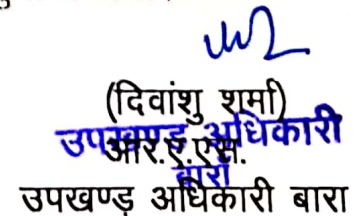 (दिवांशु शर्मा)
उपखण्ड अधिकारी
आर.ए.एस.
बारां
उपखण्ड अधिकारी बारा